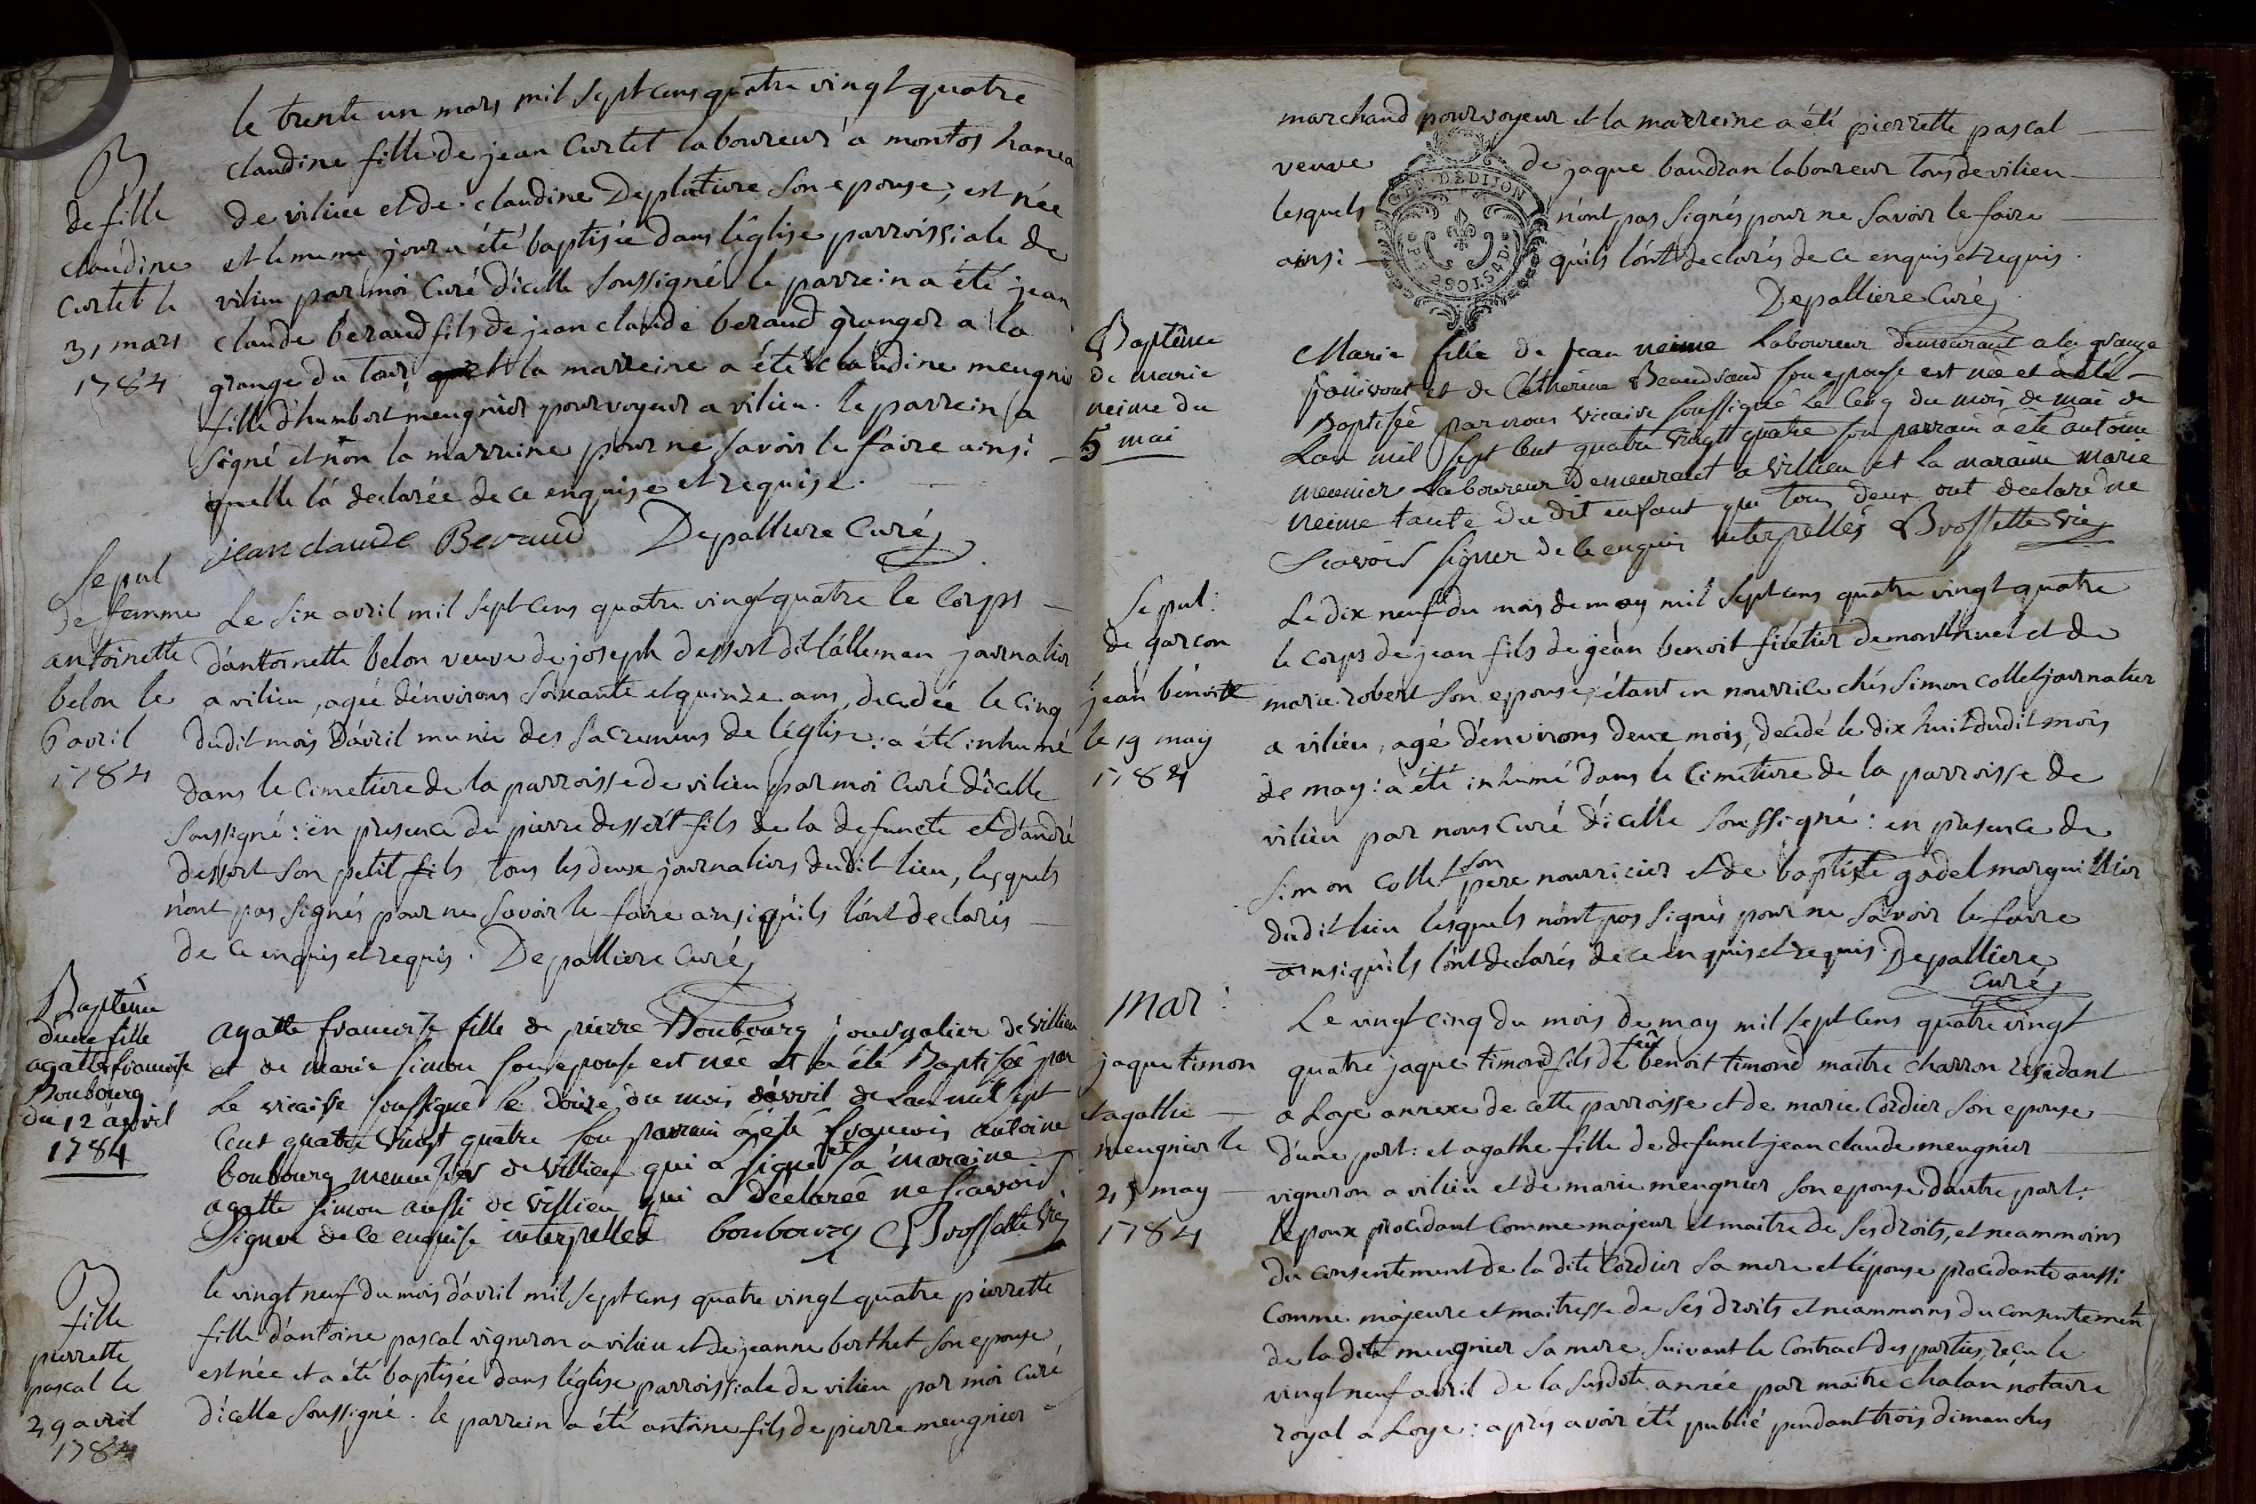 le trente un mars mil sept cens quatre vingt quatre
claudine fille de jean Curtet laboureur a montos hamea
de viliеu et de claudine Deplatiere son epouse, est née
et le meme jour a été baptisée dans l'église parroissiale de
vilieu par moi Curé d'icelle soussigné le parrein a été jean
claude beraud fils de jean claude beraud granger a la
grange du tour, et la marreine a été claudine meugnier
fille d'humbert meugnier pourvoyeur a vilieu. le parrein a
signé et non la marreine pour ne savoir le faire ainsi
quelle l'a declarée de ce enquise et requise.
jean claude Beraud Depalliere Curé
B
de fille
claudine
Curtet le
31 mars
1784
Sepul
de femme
antoinette
belon le
6 avril
1784
Le six avril mil sept cens quatre vingt quatre le Corps
d'antoinette belon veuve de joseph dessert dit l'alleman journalier
a vilieu, agée d'environs soixante et quinze ans, decedée le cinq
dudit mois d'avril munie des sacremens de l'église: a été inhumé
dans le cimetiere de la parroisse de vilieu par moi Curé d'icelle
soussigné: en presence de pierre dessert fils de la defuncte et d'andré
dessert son petit fils tous les deux journaliers dudit lieu, lesquels
n'ont pas signés pour ne savoir le faire ainsi qu'ils l'ont declarés
de ce enquis et requis. Depalliere Curé
Baptême
d'une fille
agatte francoise
Boubourg
du 12 avril
1784
agatte francoise fille de pierre Boubourg journalier de villieu
et de marie simon son epouse est née et a été Baptisée par
Le vicaire soussigné le douze du mois d'avril de Lan mil sept
Cent quatre vingt quatre son parrain a été francois antoine
boubourg menuisier de villieu qui a signé et sa maraine
agatte simon aussi de villieu qui a déclarée ne scavoir
Signer de ce enquise interpellée boubourg Brossette vic
B
fille
pierrette
pascal le
29 avril
1784
le vingt neuf du mois d'avril mil sept cens quatre vingt quatre pierrette
fille d'antoine pascal vigneron a vilieu et de jeanne berthet son epouse
est née et a été baptisée dans l'église parroissiale de vilieu par moi Curé
d'icelle soussigné. le parrein a été antoine fils de pierre meugnier
marchand pourvoyeur et la marreine a été pierrette pascal
veuve de jaque baudran laboureur tous de vilieu
lesquels n'ont pas signés pour ne savoir le faire
ainsi qu'ils l'ont declarés de ce enquis et requis.
GEN. DE DIJON
Depalliere Curé
Baptême
de marie
neime du
5 mai
Marie fille de jean neime Laboureur demeurant a la grange
et de Catherine son epouse est née et a été
Baptisée par nous vicaire soussigné Le cinq du mois de mai de
Lan mil sept Cent quatre vingt quatre son parrain a été antoine
meunier Laboureur Demeurant a villieu et la maraine marie
neime tante du dit enfant qui tous deux ont declaré ne
Scavoir signer de ce enquis interpellés Brossette vic
Sepul:
de garcon
jean benoit
le 19 may
1784
Le dix neuf du mois de may mil sept cens quatre vingt quatre
le corps de jean fils de jean benoit filetier de montluel et de
marie robert son epouse, étant en nourrice chés simon collet journalier
a vilieu, agé d'environs deux mois, decedé le dix huit dudit mois
de may: a été inhumé dans le Cimetiere de la parroisse de
vilieu par nous Curé d'icelle soussigné: en presence de
simon collet son pere nourricier et de baptiste godel marguillier
dudit lieu lesquels n'ont pas signés pour ne savoir le faire
ainsi qu'ils l'ont declarés de ce enquis et requis. Depalliere
Curé
mar:
jaque timon
et agathe
meugnier le
25 may
1784
Le vingt cinq du mois de may mil sept cens quatre vingt
quatre jaque timond fils de feu benoit timond maitre charron residant
a Loye annexe de cette parroisse et de marie Cordier son epouse
d'une part: et agathe fille de defunct jean claude meugnier
vigneron a vilieu et de marie meugnier son epouse d'autre part.
l'epoux procedant comme majeur et maitre de ses droits, et neammoins
du consentement de la dite Cordier sa mere et l'épouse procedante aussi
comme majeure et maitresse de ses droits et neammoins du consentement
de la dite meugnier sa mere suivant le Contract des parties, reçu le
vingt neuf avril de la susdite année par maitre chalan notaire
royal a Loye: aprés avoir été publié pendant trois dimanches